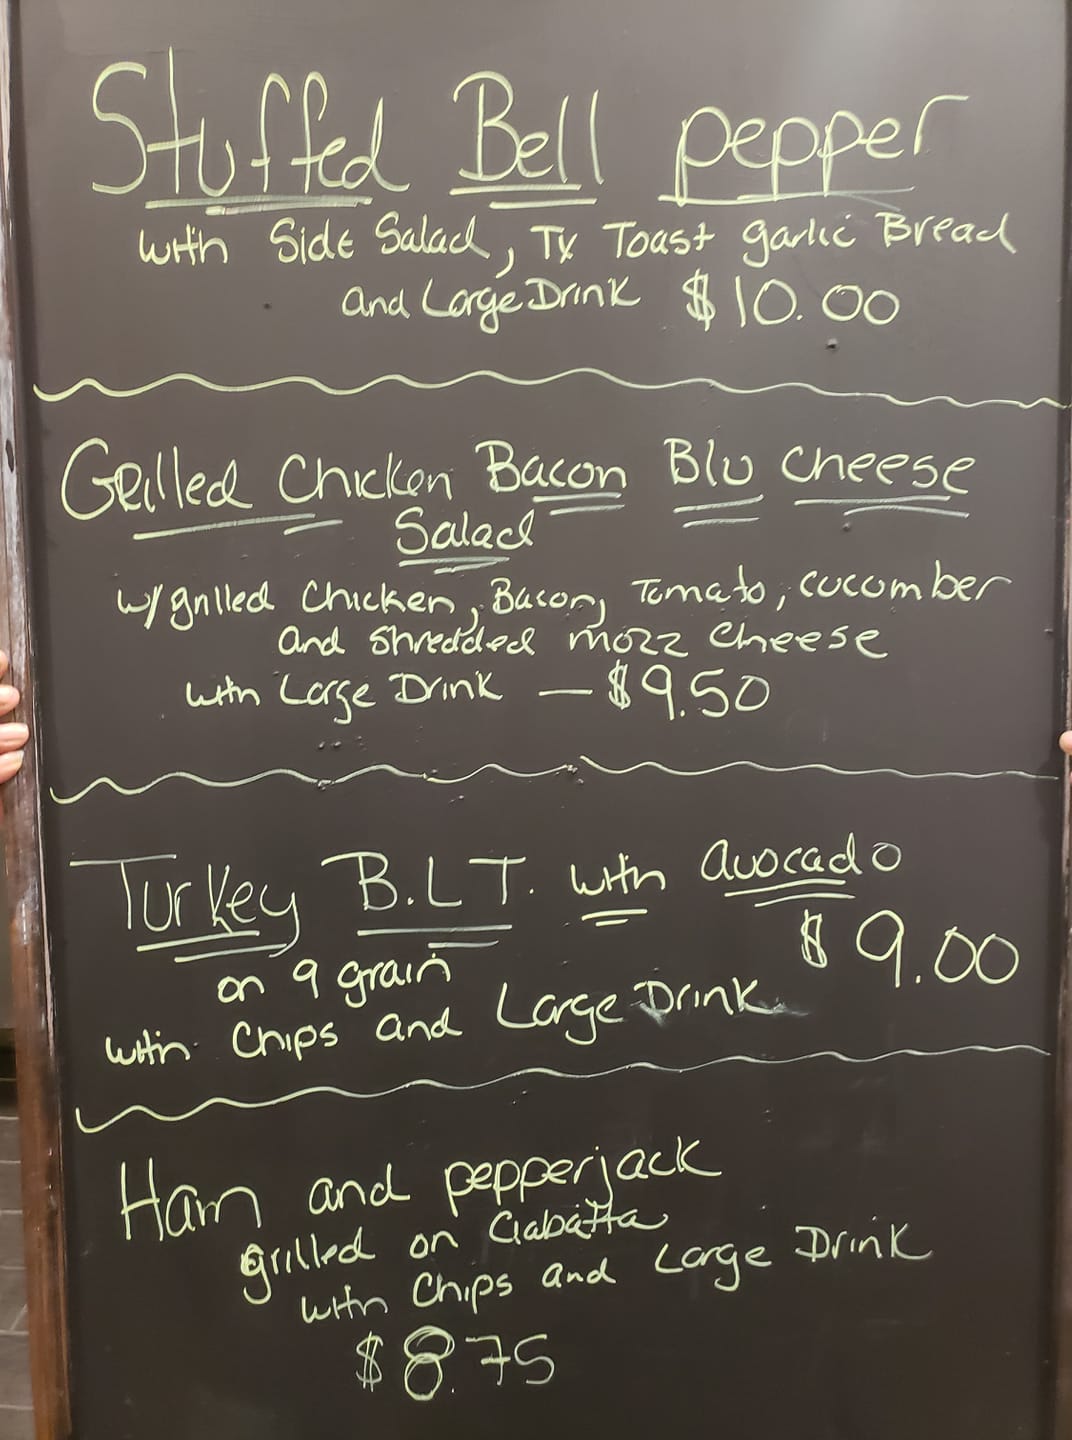 Stuffed Bell pepper
with Side Salad, Tx Toast garlic Bread
and Large Drink $10.00
Grilled Chicken Bacon Blu Cheese
Salad
w/grilled Chicken, Bacon, Tomato, cucumber
and shredded mozz Cheese
with Large Drink — $9.50
Turkey B.L.T. with avocado
$9.00
on 9 grain
with Chips and Large Drink
Ham and pepperjack
grilled on Ciabatta
with Chips and Large Drink
$8.75